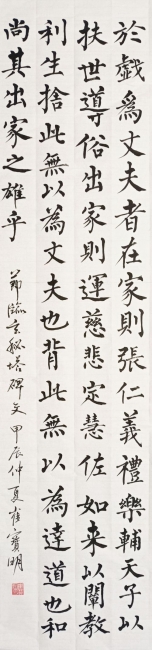 於戲爲丈夫者在家則張仁義禮樂輔天子以
扶世導俗出家則運慈悲定慧佐如来以闡教
利生捨此無以為丈夫也背此無以為達道也和
尚其出家之雄乎
節臨玄秘塔碑文甲辰仲夏崔寶明